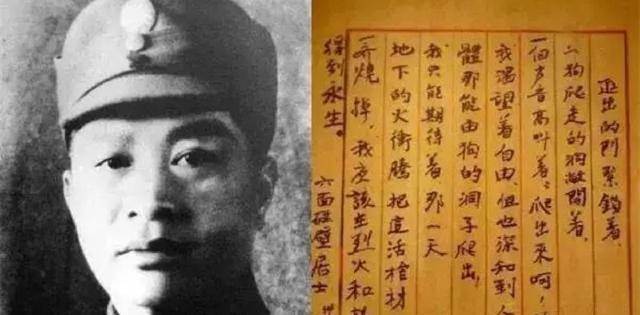 的門緊鎖着、
狗爬走的洞敞開着、
一個声音高叫着、爬出來呵！
我渴望着自由、但也深知到
體那能由狗的洞子爬出
我只能期待着那一天
地下的火衝騰把這活棺材
一齊燒掉、我应該在烈火和
得到永生。
六面碰壁居士